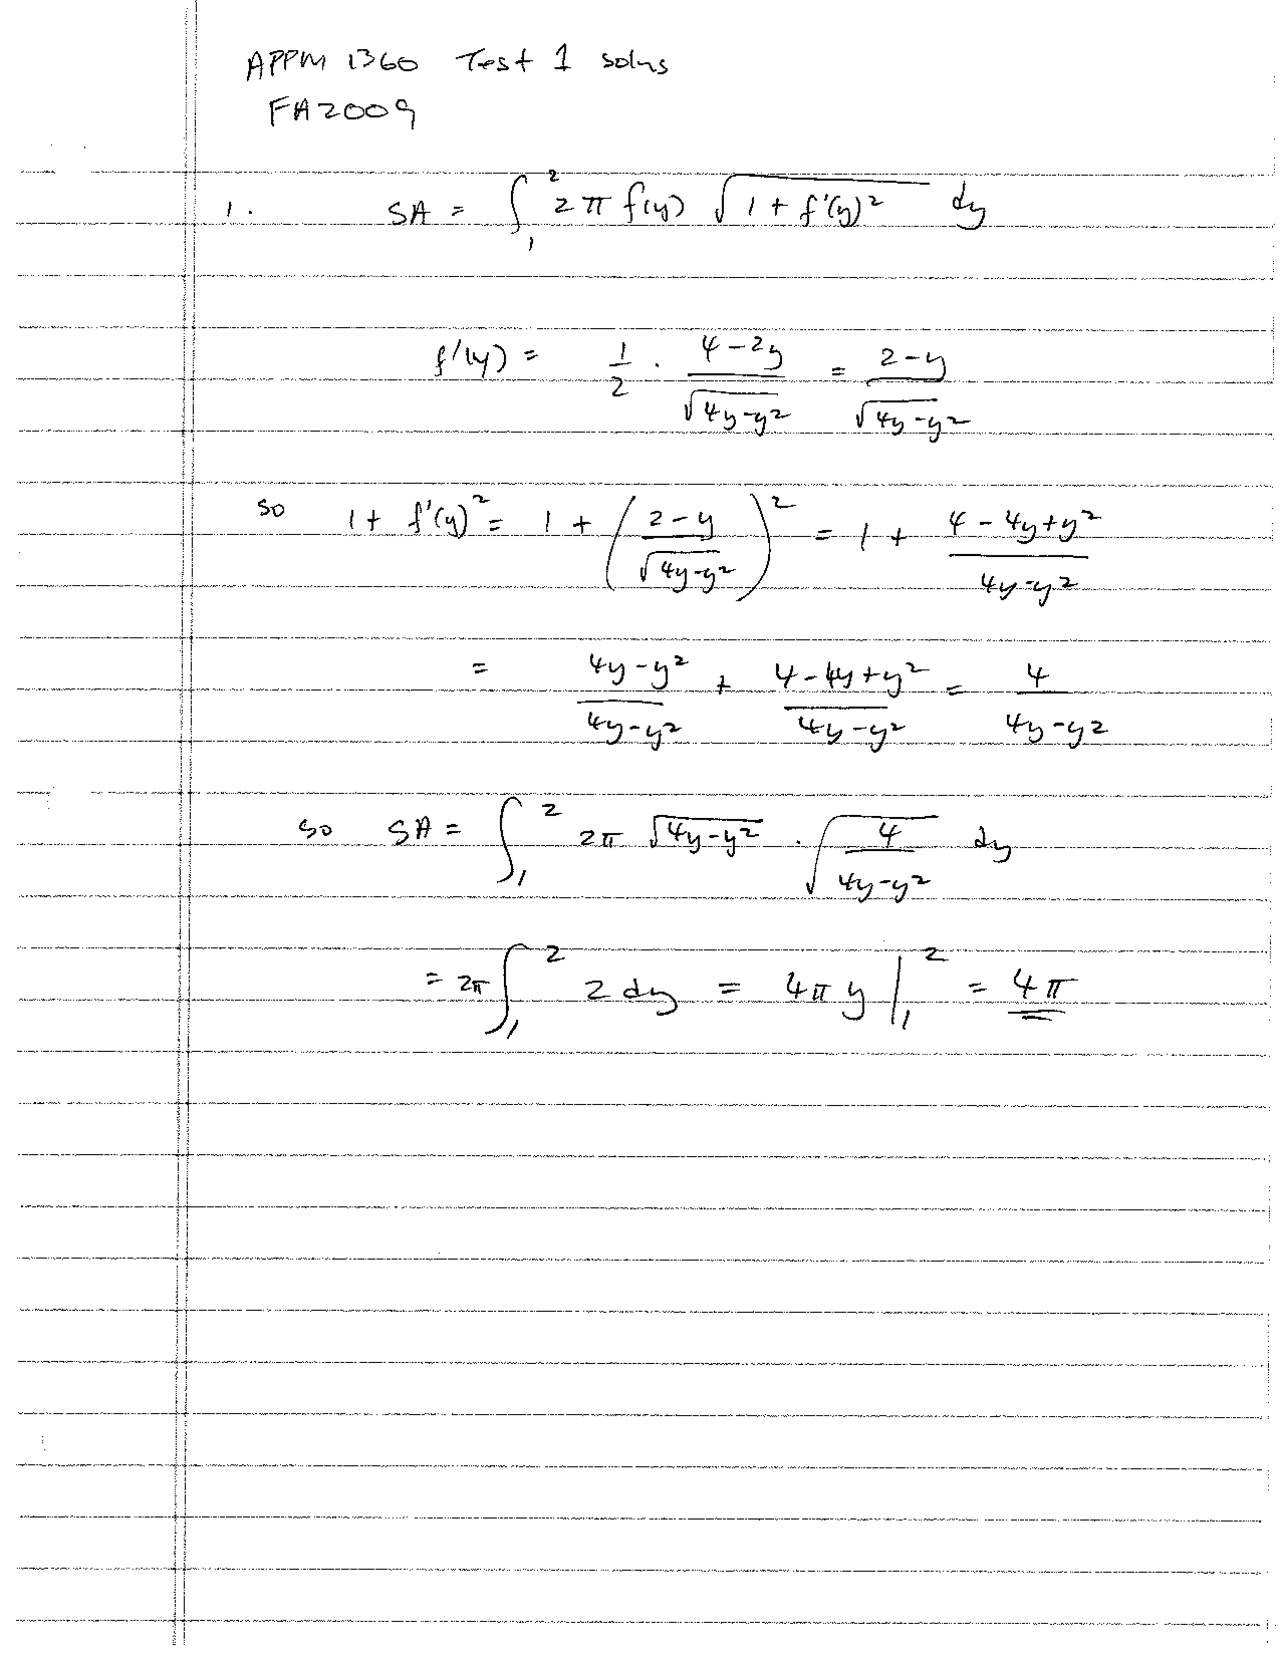 APPM 1360 Test 1 solns
FA2009
1. SA = ∫₁² 2π f(y) √(1 + f'(y)²) dy
f'(y) = 1/2 · (4-2y)/√(4y-y²) = (2-y)/√(4y-y²)
so 1 + f'(y)² = 1 + ((2-y)/√(4y-y²))² = 1 + (4-4y+y²)/(4y-y²)
= (4y-y²)/(4y-y²) + (4-4y+y²)/(4y-y²) = 4/(4y-y²)
so SA = ∫₁² 2π √(4y-y²) · √(4/(4y-y²)) dy
= 2π ∫₁² 2 dy = 4π y |₁² = 4π